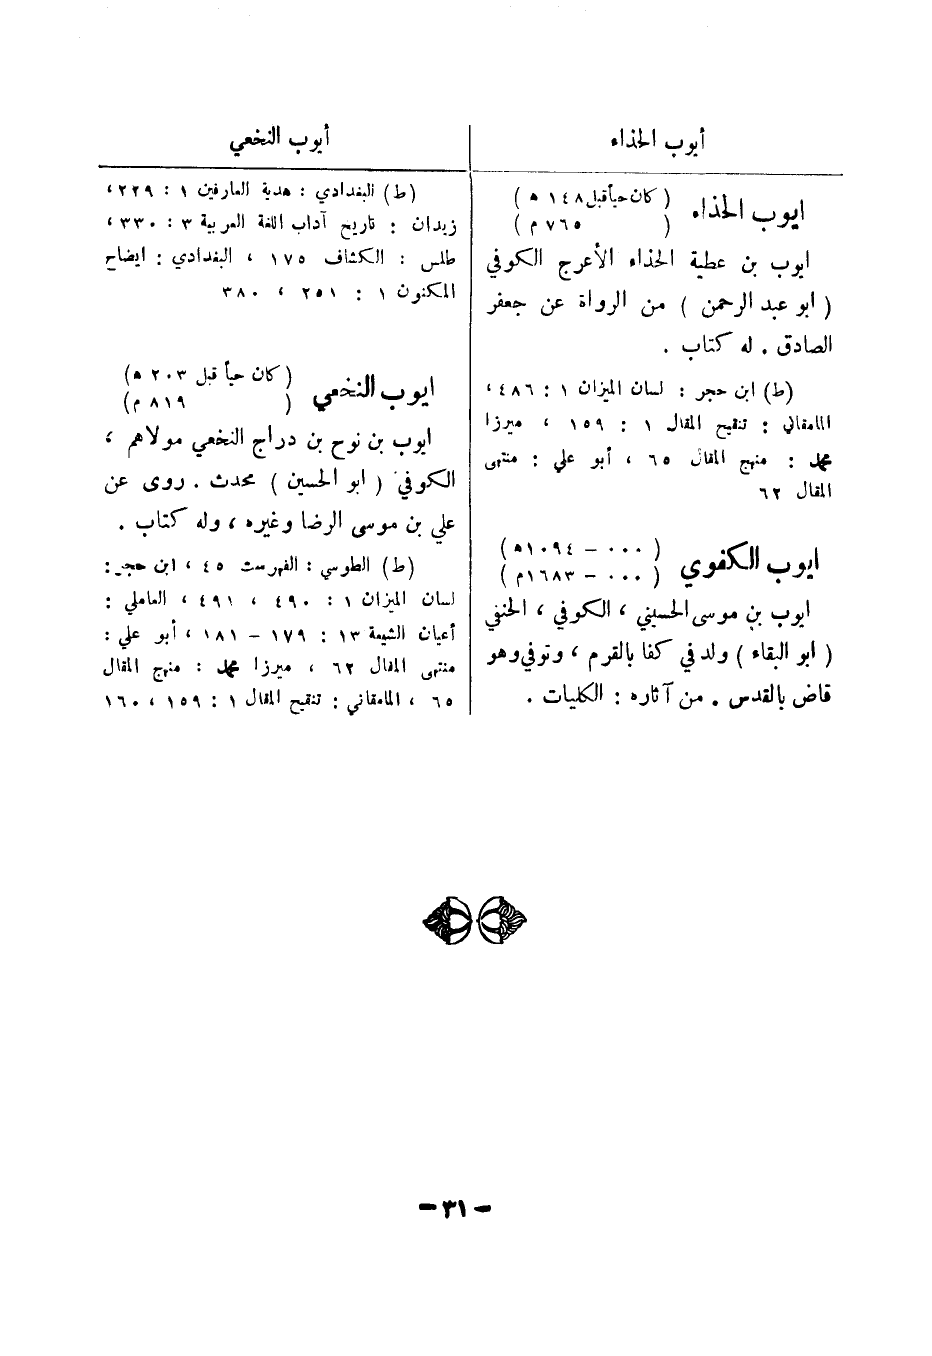 أيوب الحذاء
ايوب الحذاء
( كان حياً قبل ١٤٨ ه )
( ٧٦٥ م )
ايوب بن عطية الحذاء الأعرج الكوفي
( ابو عبد الرحمن ) من الرواة عن جعفر
الصادق . له كتاب .
(ط) ابن حجر : لسان الميزان ١ : ٤٨٦ ،
المامقاني : تنقيح المقال ١ : ١٥٩ ، ميرزا
محمد : منهج المقال ٦٥ ، أبو علي : منتهى
المقال ٦٢
ايوب الكفوي
( ٠٠٠ – ١٠٩٤ه )
( ٠٠٠ – ١٦٨٣م )
ايوب بن موسى الحسيني ، الكوفي ، الحنفي
( ابو البقاء ) ولد في كفا بالقرم ، وتوفي وهو
قاض بالقدس . من آثاره : الكليات .
أيوب النخعي
(ط) البغدادي : هدية العارفين ١ : ٢٢٩ ،
زيدان : تاريخ آداب اللغة العربية ٣ : ٣٣٠ ،
طلس : الكشاف ١٧٥ ، البغدادي : ايضاح
المكنون ١ : ٢٥١ ، ٣٨٠
ايوب النخعي
( كان حياً قبل ٢٠٣ ه )
( ٨١٩ م )
ايوب بن نوح بن دراج النخعي مولاهم ،
الكوفي ( ابو الحسين ) محدث . روى عن
علي بن موسى الرضا وغيره ، وله كتاب .
(ط) الطوسي : الفهرست ٤٥ ، ابن حجر :
لسان الميزان ١ : ٤٩٠ ، ٤٩١ ، العاملي :
أعيان الشيعة ١٣ : ١٧٩ – ١٨١ ، أبو علي :
منتهى المقال ٦٢ ، ميرزا محمد : منهج المقال
٦٥ ، المامقاني : تنقيح المقال ١ : ١٥٩ ، ١٦٠
– ٣١ –